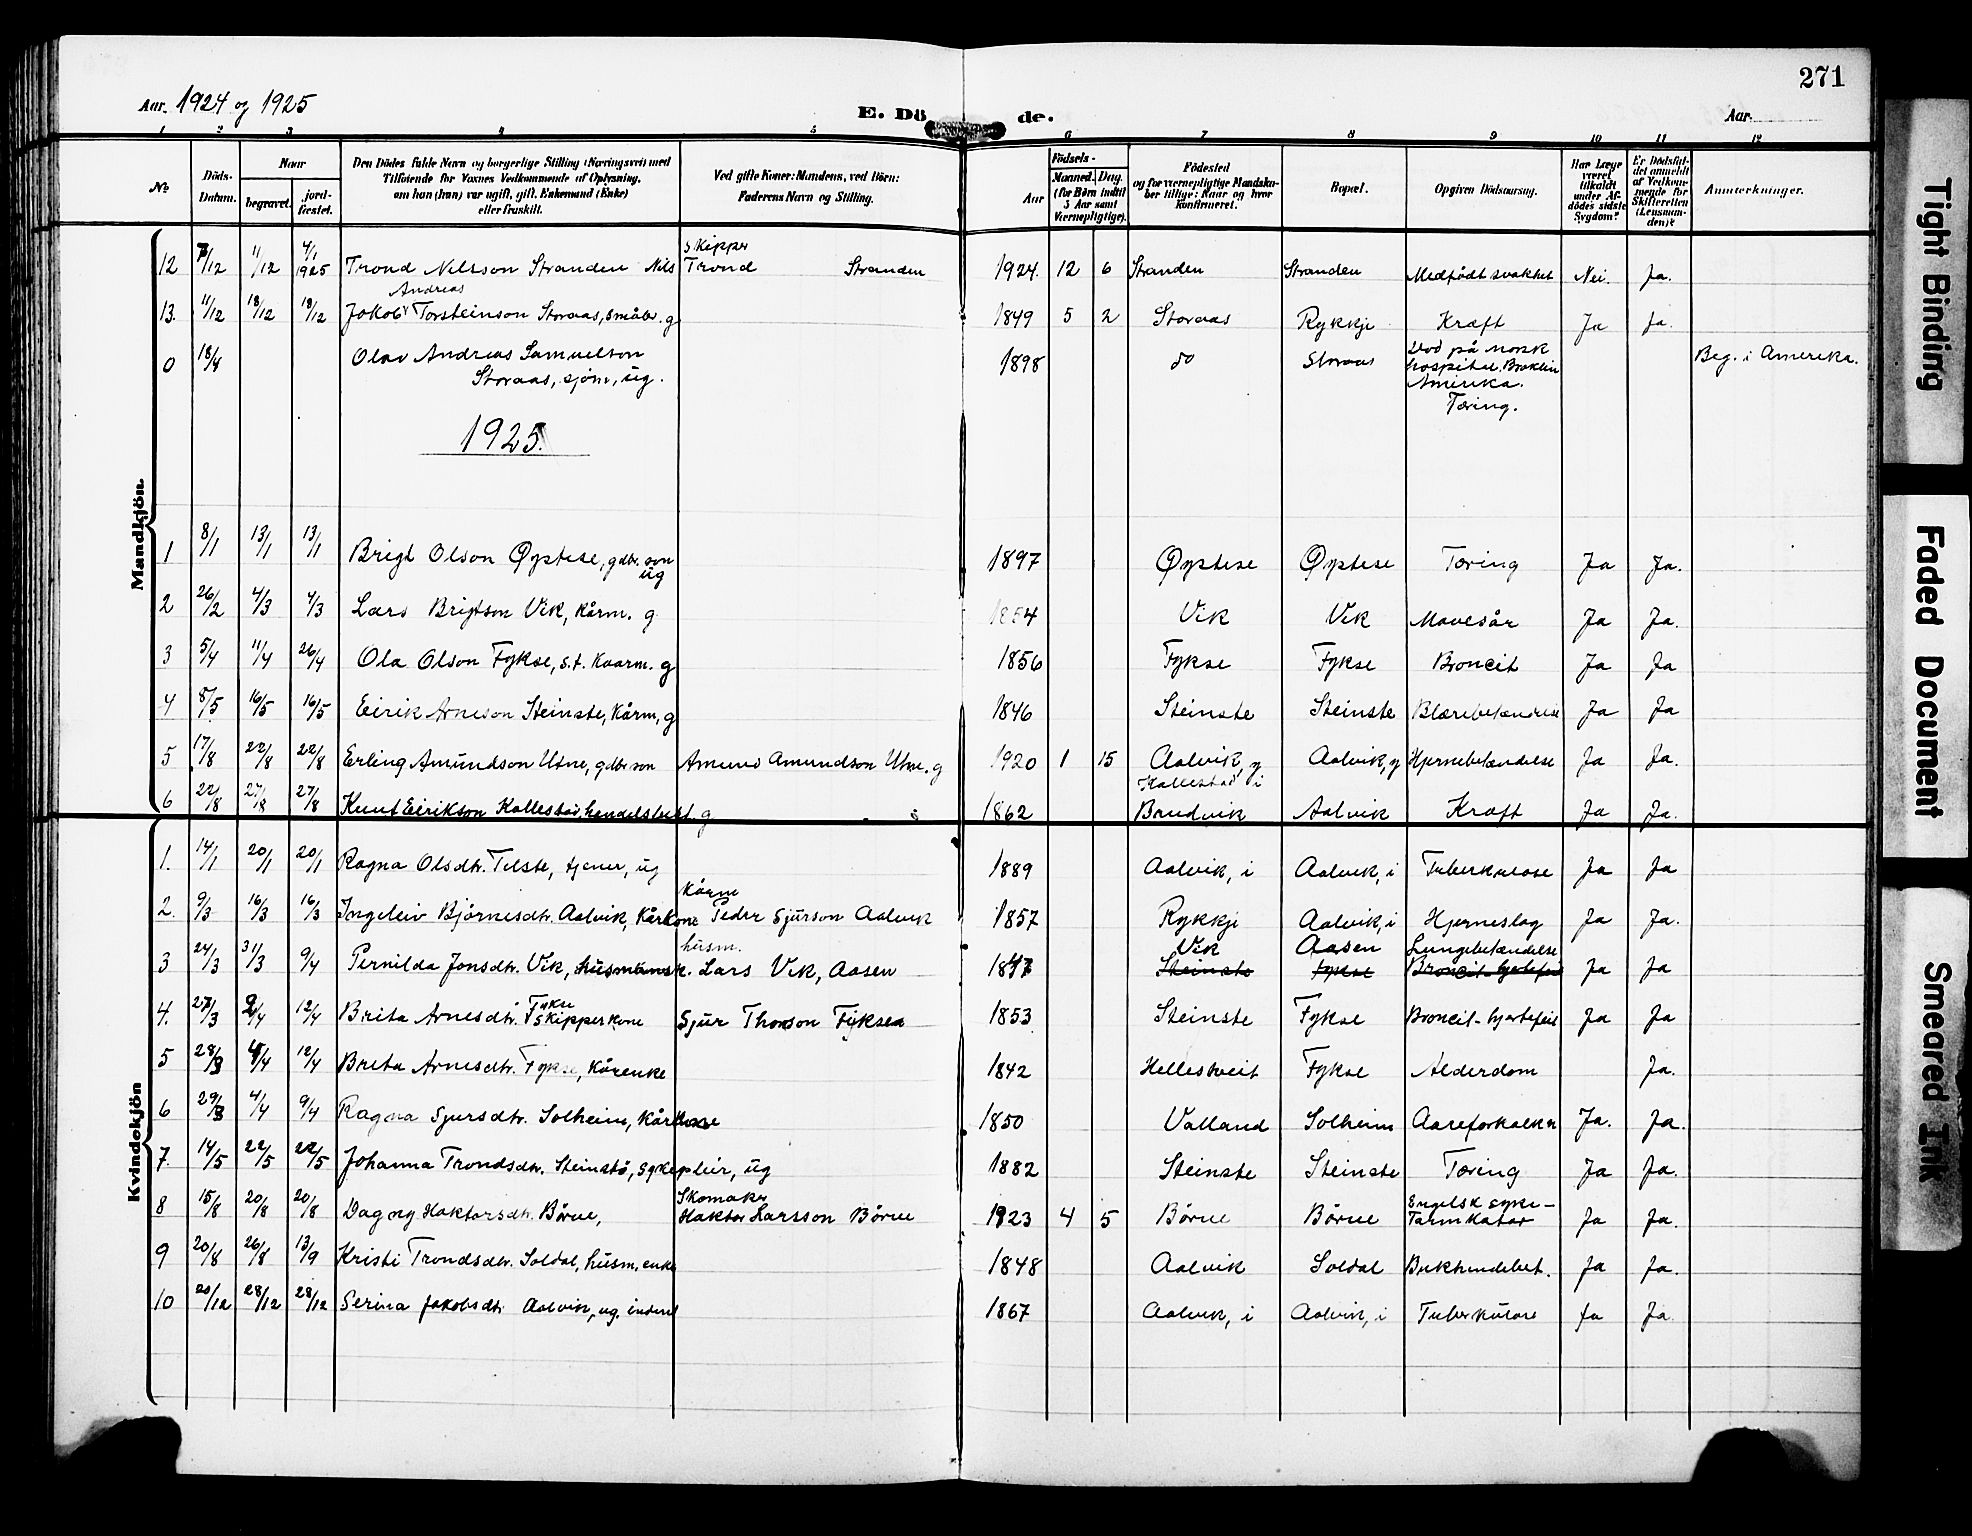 271
Aar. 1924 og 1925
E. Dö de.
Aar.
1 2 3 4 5 6 7 8 9 10 11 12
No
Döds-Datum.
Naar
begravet.
jordfæstet.
Den Dödes fulde Navn og borgerlige Stilling (Næringsvei) med
Tilföiende for Voxnes Vedkommende af Oplysning,
om han (hun) var ugift, gift, Enkemand (Enke)
eller fraskilt.
Ved gifte Koner: Mandens, ved Börn:
Faderens Navn og Stilling.
Födsels-
Aar
Maaned. Dag.
(for Børn indtil 5 Aar samt Værnepligtige).
Födested
og for værnepligtige Mandskaber tillige: Naar og hvor konfirmeret.
Bopæl.
Opgiven Dödsaarsag.
Har Læge været tilkaldt under Afdödes sidste Sygdom?
Er Dödsfaldet anmeldt af Vedkommende for Skifteretten (Lensmanden)?
Anmærkninger.
Mandkjön.
12 7/12 11/12 4/1 1925 Trond Nilsson Stranden Skipper Nils Trond Stranden 1924. 12 6 Stranden Stranden Medfödt svakhet Nei. Ja.
13. 11/12 18/12 18/12 Jakob Andreas Torsteinson Storaas, småbr. g 1849 5 2 Storaas Rykkje Kræft Ja Ja.
0 18/4 Olav Andreas Samuelson
Storaas, sjöm, ug. 1898 do Storaas Död på norsk
hospital, Broklin
Amerika.
Tæring. Beg. i Amerika.
1925.
1 8/1 13/1 13/1 Brigt Olson Øystese, gdbr. son
ug 1897 Øystese Øystese Tæring Ja Ja.
2 26/2 4/3 4/3 Lars Brigtson Vik, Kårm. g 1854 Vik Vik Mavesår Ja Ja.
3 5/4 11/4 26/4 Ola Olson Fykse, s.t. Kaarm. g 1856 Fykse Fykse Broncit Ja Ja
4 8/5 16/5 16/5 Eirik Arneson Steinstø, Kårm, g 1846 Steinstø Steinstø Blærebetændelse Ja Ja
5 17/8 22/8 22/8 Erling Amundson Utne, gdbr son Amund Amundson Utne. g 1920 1 15 Aalvik, y Aalvik, y Hjernebetændelse Ja Ja.
6 22/8 27/8 27/8 Knut Eirikson Kallestad, handelsbest. g 1862 Kallestad i
Bandvik Aalvik Kræft Ja Ja.
Kvindekjön
1. 14/1 20/1 20/1 Ragna Olsdtr. Telstø, tjener, ug 1889 Aalvik, i Aalvik, i Tuberkulose Ja Ja
2. 9/3 16/3 16/3 Ingeleiv Björnesdtr. Aalvik, Kårkone Kårm Peder Sjurson Aalvik 1857 Rykkje Aalvik, i Hjerneslag Ja Ja.
3 24/3 31/3 9/4 Pernilda Jonsdtr. Vik, husmansk. husm. Lars Vik, Aasen 1847 Vik Steinstø Aasen Fykse Lungebetændelse Broncit-hjertefeil Ja Ja
4. 27/3 2/4 12/4 Brita Arnesdtr. Fykse Skipperkone Sjur Thorson Fyksen 1853 Steinstø Fykse Broncit-hjertefeil Ja Ja
5 28/3 4/4 12/4 Brita Arnesdtr. Fykse, Kårenke 1842 Hellestveit Fykse Alderdom Ja.
6 29/3 4/4 9/4 Ragna Sjursdtr. Solheim, Kårkone 1850 Valland Solheim Aareforkalkn Ja. Ja.
7. 14/5 22/5 22/5 Johanna Trondsdtr. Steinstø, sykepleir, ug 1882 Steinstø Steinstø Tæring Ja Ja.
8 15/8 20/8 20/8 Dagny Haktorsdtr. Börve, Skomaker
Haktor Larsson Börve 1923 4 5 Börve Börve Engelsk syke-
Tarmkatar Ja Ja.
9 20/8 26/8 13/9 Kristi Trondsdtr. Soldal, husm, enke 1848 Aalvik Soldal Bukhindebet. Ja Ja.
10 20/12 28/12 28/12 Serina Jakobsdtr Aalvik, ug. inderst 1867 Aalvik, i Aalvik, i Tuberkulose Ja Ja.
Tight Binding
Faded Document
Smeared Ink